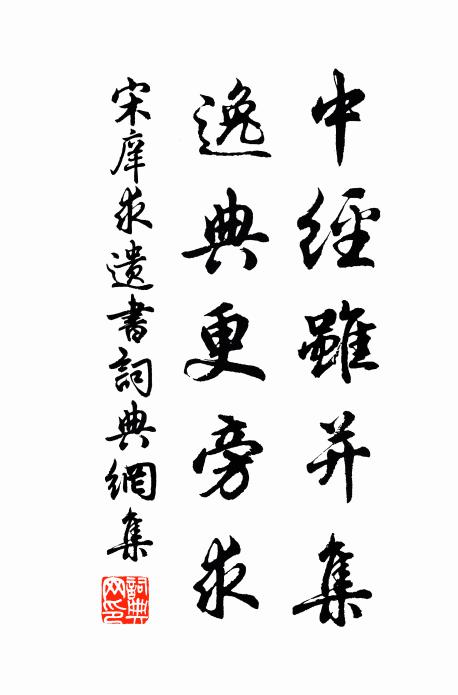 中經雖并集
逸典更旁求
宋庠求遺書詞典網集
詞典網印